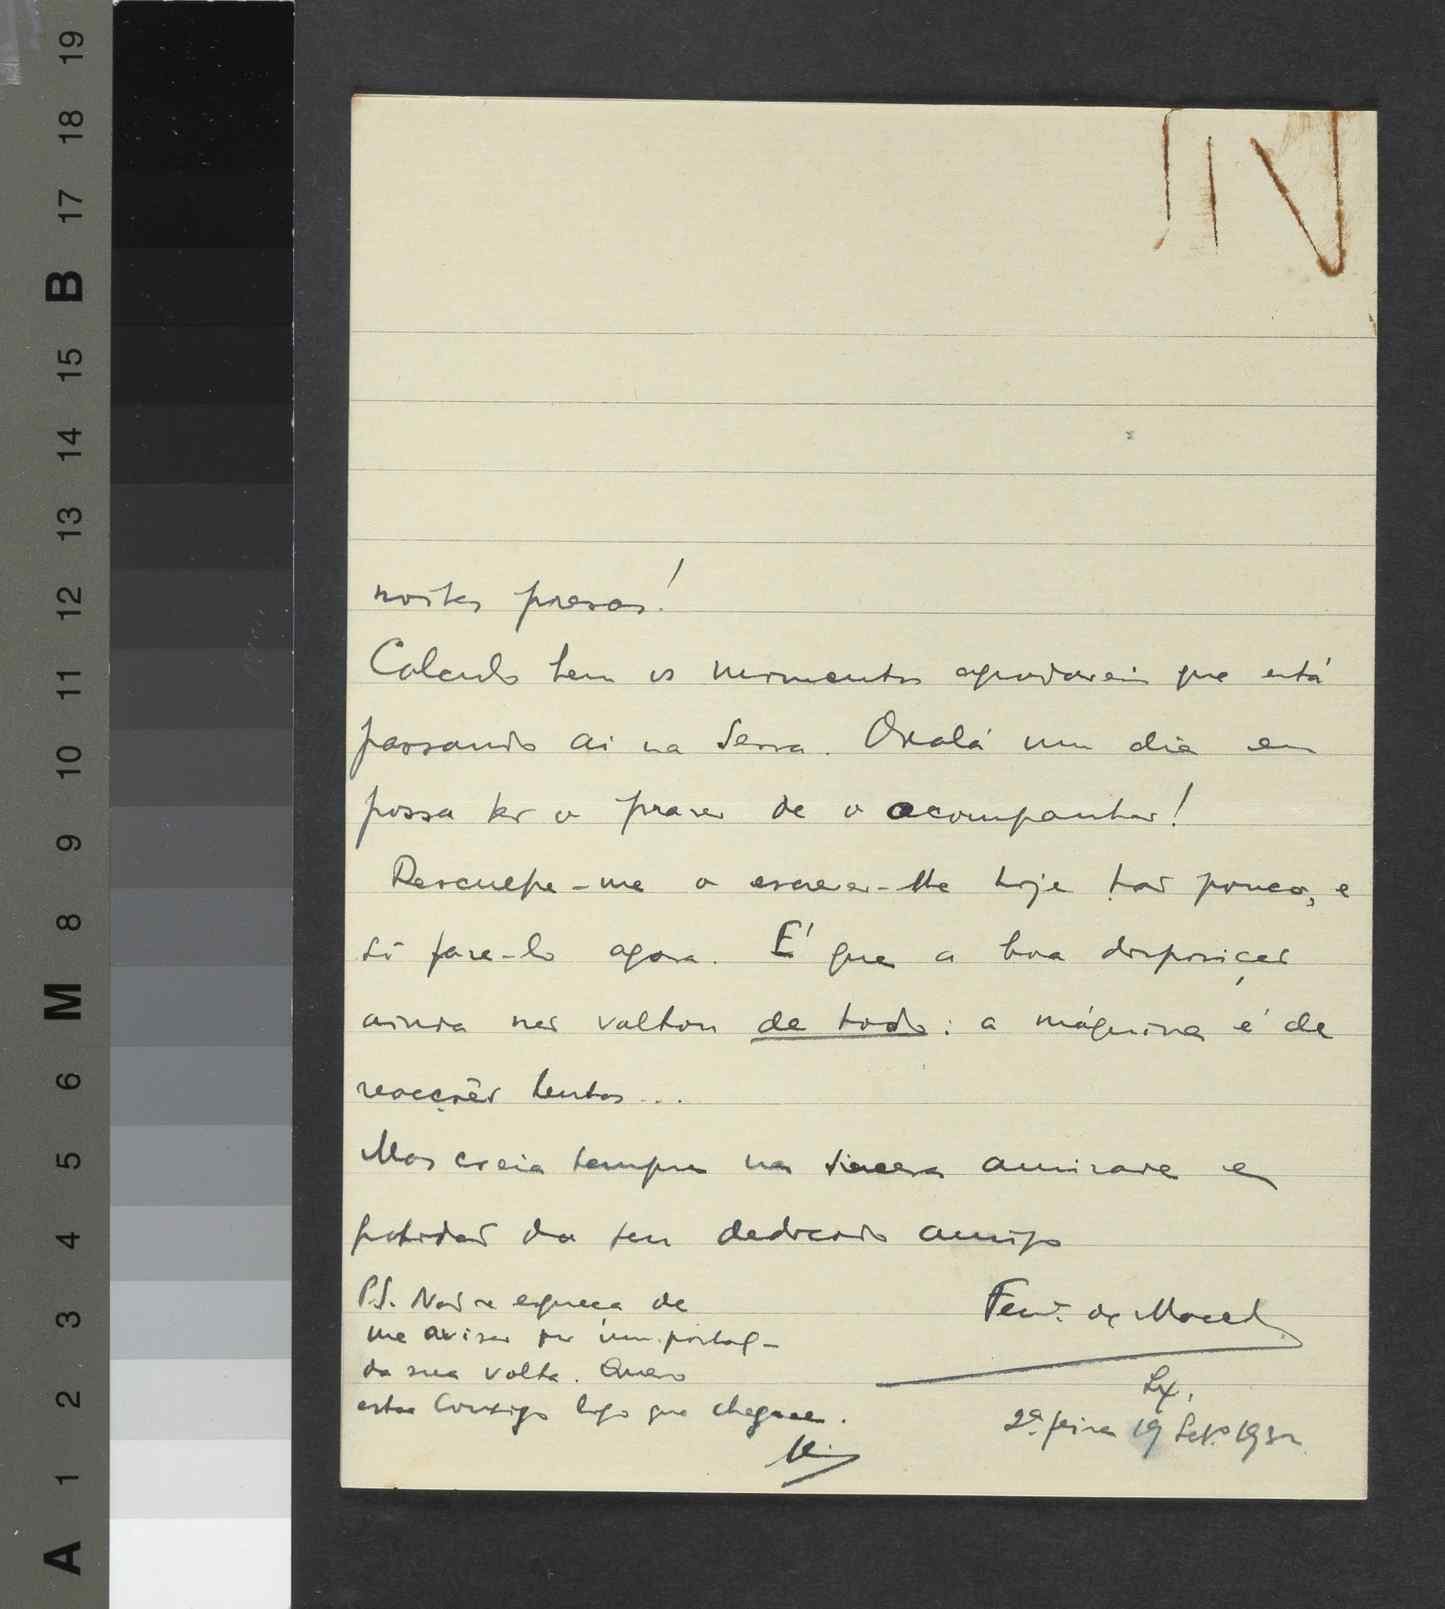 noites
Calculo bem os momentos agradaveis que está
passando aí na Serra. Oxalá um dia eu
possa ter o prazer de o acompanhar!
Desculpe-me o escrever-lhe hoje tão pouco, e
só faze-lo agora. É que a boa disposição
ainda não voltou de todo: a máquina é de
reacções lentas...
Mas creia sempre na sincera amizade e
gratidão do seu dedicado amigo
P.S. Não se esqueça de
me avisar por um postal
da sua volta. Quero
estar consigo logo que chegue.
Fern. de Macedo
Lx,
2ª feira 19 Set.º 1932
A 1 2 3 4 5 6 M 8 9 10 11 12 13 14 15 B 17 18 19